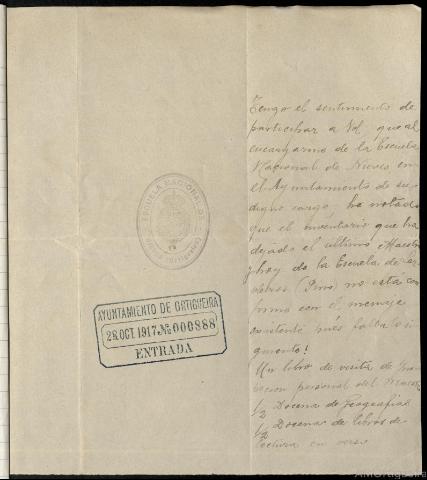 Tengo el sentimiento de
participar a Vd. que al
encargarme de la Escuela
Nacional de Nieves en
el Ayuntamiento de su
digno cargo, ha notado
que el inventario que ha
dejado el ultimo Maestro
y hoy de la Escuela de
(Pino) no está con
forme con el menaje
existente pués falta lo si
guiente:
Un libro de visita de Ins
peccion personal del
1/2 Docena de Geografias
1/2 Docena de libros de
lectura en verso
ESCUELA NACIONAL DE
AYUNTAMIENTO DE ORTIGUEIRA
28 OCT. 1917 № 000888
ENTRADA